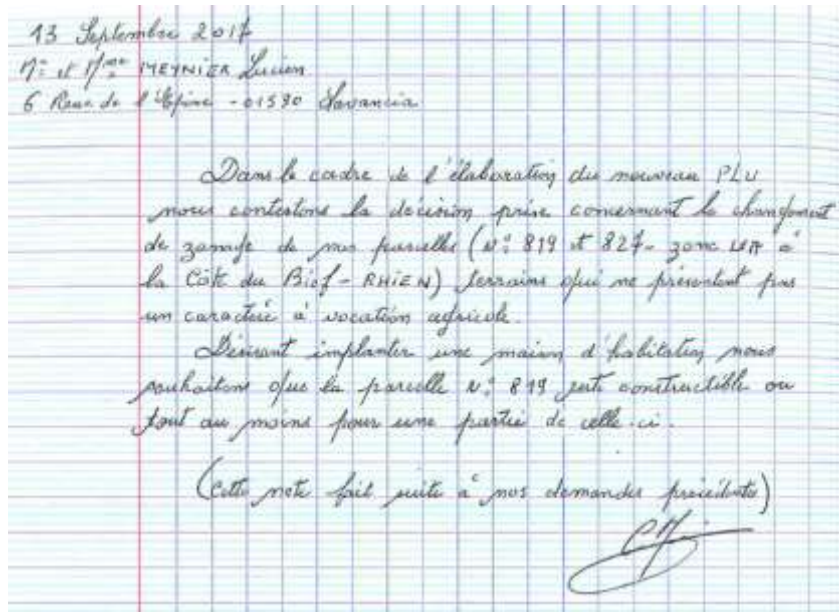 13 Septembre 2017
Mr et Mme MEYNIER Lucien
6 Rue de l'Epine - 01590 Lavancia
Dans le cadre de l'élaboration du nouveau PLU
nous contestons la décision prise concernant le changement
de zonage de nos parcelles (N° 819 et 827 - zone UA à
la Côte du Bief - RHIEN) terrains qui ne présentent pas
un caractère à vocation agricole.
Désirant implanter une maison d'habitation nous
souhaitons que la parcelle N° 819 reste constructible ou
tout au moins pour une partie de celle-ci.
(Cette note fait suite à nos demandes précédentes)